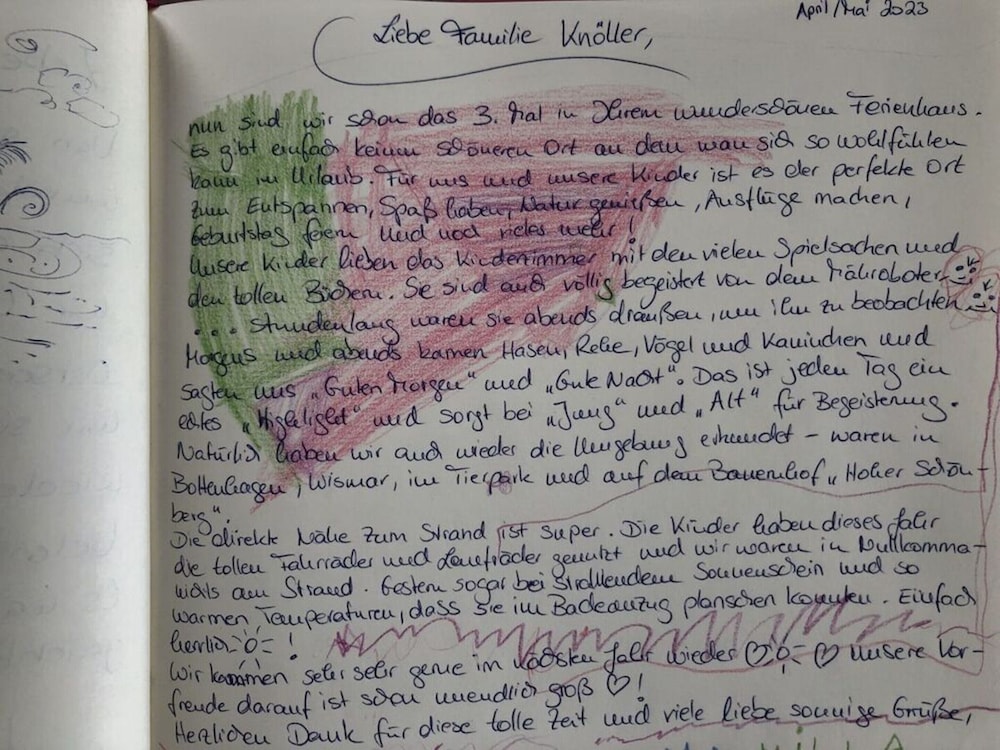 April/Mai 2023
Liebe Familie Knöller,
nun sind wir schon das 3. Mal in Ihrem wunderschönen Ferienhaus.
Es gibt einfach keinen schöneren Ort an dem man sich so wohlfühlen
kann im Urlaub. Für uns und unsere Kinder ist es der perfekte Ort
zum Entspannen, Spaß haben, Natur genießen, Ausflüge machen,
Geburtstag feiern und noch vieles mehr!
Unsere Kinder lieben das Kinderzimmer mit den vielen Spielsachen und
den tollen Büchern. Sie sind auch völlig begeistert von dem Mähroboter
... stundenlang waren sie abends draußen, um ihn zu beobachten.
Morgens und abends kamen Hasen, Rehe, Vögel und Kaninchen und
sagten uns „Guten Morgen" und „Gute Nacht". Das ist jeden Tag ein
echtes „Highlight" und sorgt bei „Jung" und „Alt" für Begeisterung.
Natürlich haben wir auch wieder die Umgebung erkundet - waren in
Boltenhagen, Wismar, im Tierpark und auf dem Bauernhof „Hoher Schön-
berg".
Die direkte Nähe zum Strand ist super. Die Kinder haben dieses Jahr
die tollen Fahrräder und Laufräder genutzt und wir waren in Nullkomma-
nichts am Strand. Gestern sogar bei strahlendem Sonnenschein und so
warmen Temperaturen, dass sie im Badeanzug planschen konnten. Einfach
herrlich!
Wir kommen sehr sehr gerne im nächsten Jahr wieder unsere Vor-
freude darauf ist schon unendlich groß!
Herzlichen Dank für diese tolle Zeit und viele liebe sonnige Grüße,